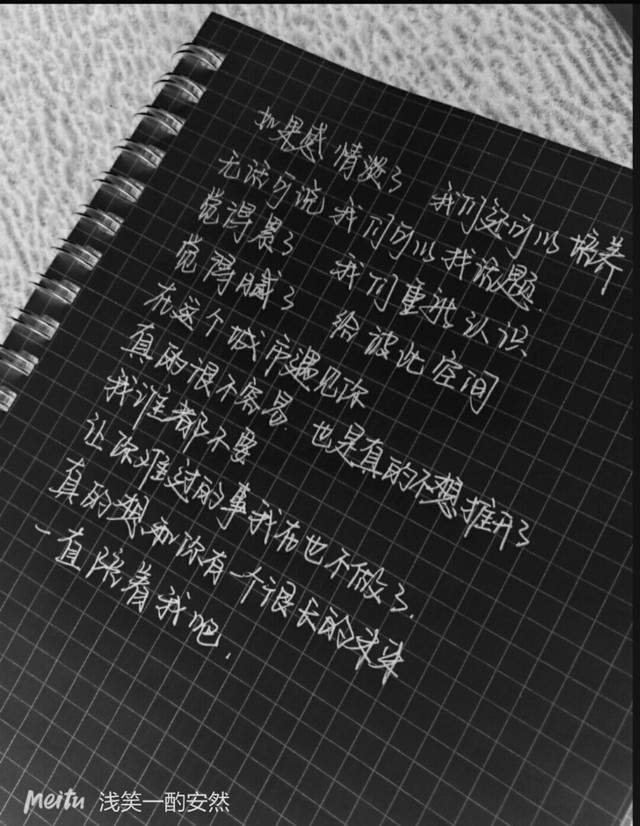 如果感情淡了 我们还可以培养
无话可说 我们可以找话题
觉得累了 我们重新认识
觉得腻了 给彼此空间
在这个城市遇见你
真的很不容易. 也是真的不想推开了
我谁都不要
让你难过的事我在也不做了.
真的想和你有一个很长的未来
一直陪着我吧.
Meitu 浅笑一酌安然